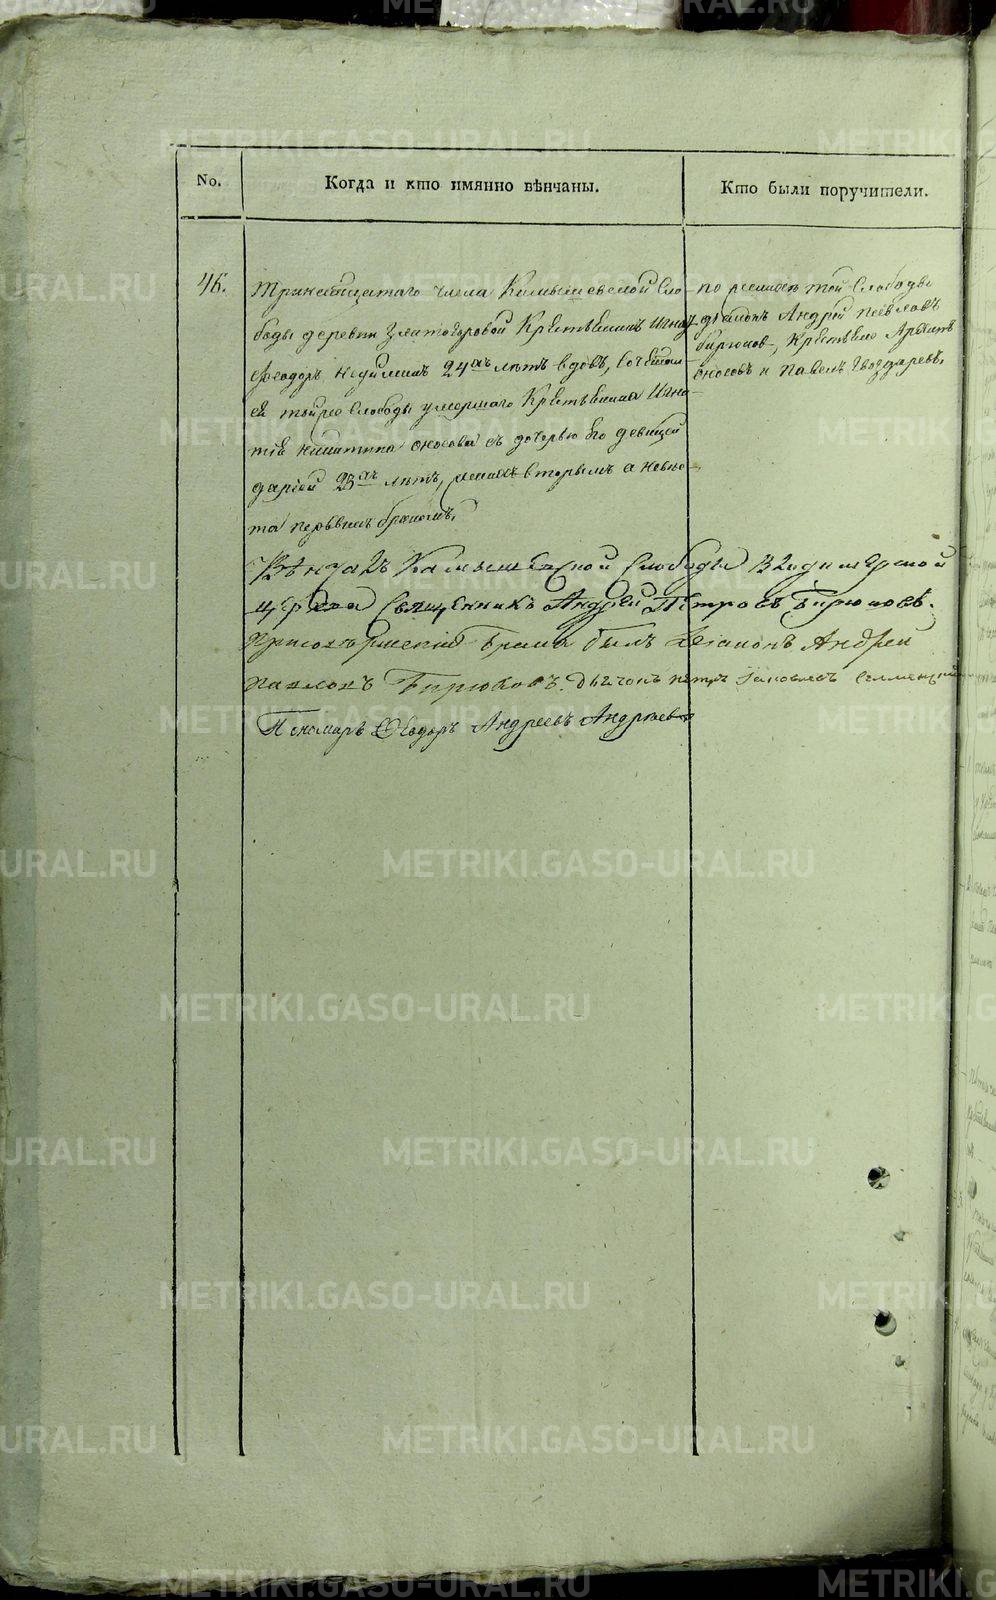 No.
Когда и кто имянно вѣнчаны.
Кто были поручители.
46.
Тринадцатаго числа Камышевской Сло-
боды деревни Златогоровой Крестьянинъ Игнат
Феодоръ 24хъ лѣтъ вдовъ,
тойже Слободы умершаго Крестьянина Игна-
тія Никитина Оносова съ дочерью Его девицей
Даріей 23хъ лѣтъ, женихъ вторымъ а невѣс-
та первымъ бракомъ.
по женихѣ той Слободы
дьяконъ Андрей Павловъ
Бирюков, Крестьяне
Оносовъ и Павелъ Гвоздаревъ.
Вѣнчалъ Камышевской Слободы Входиіерусской
Церкви Священникъ Андрей Петровъ Бирюковъ.
При семъ Браке былъ Диаконъ Андрей
Павловъ Бирюковъ. Дьячокъ Петръ Яковлевъ
Пономарь Феодоръ Андреевъ Андреевъ
METRIKI.GASO-URAL.RU